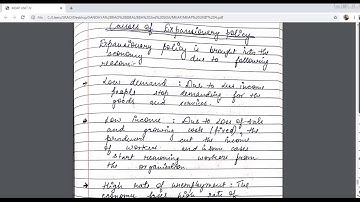 Causes of Expansionary policy
Expansionary policy is brought into the
economy due to following
reason:-
→ Low demand : Due to less income
people stop demanding for the
goods and services.
→ Low income : Due to loss of sale
and growing cost (fixed), the
producers cut the income
of workers and in some cases
start removing workers from
the organisation.
→ High rate of unemployment : The
economy face high rate of